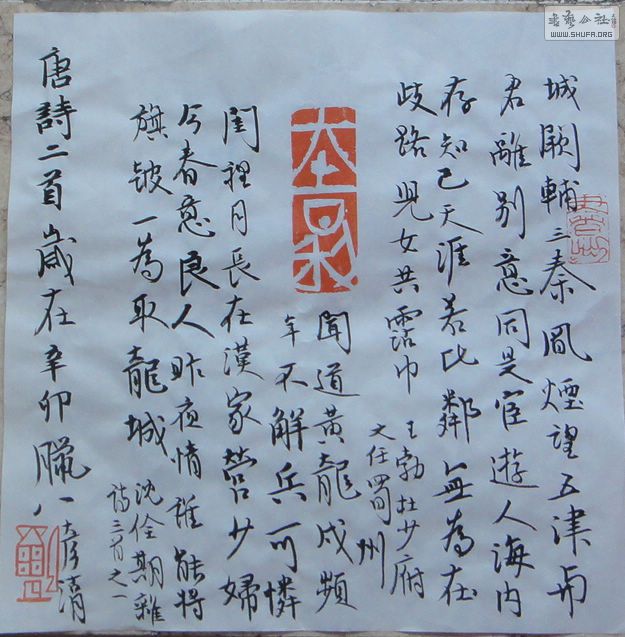 城闕輔三秦風煙望五津与
君離別意同是宦遊人海内
存知己天涯若比鄰無為在
歧路兒女共霑巾
王勃杜少府
之任蜀州
聞道黃龍戍頻
年不解兵可憐
閨裡月長在漢家營少婦
今春意良人昨夜情誰能將
旗皷一為取龍城
沈佺期雜
詩三首之一
唐詩二首歲在辛卯臘八
书艺公社
WWW.SHUFA.ORG